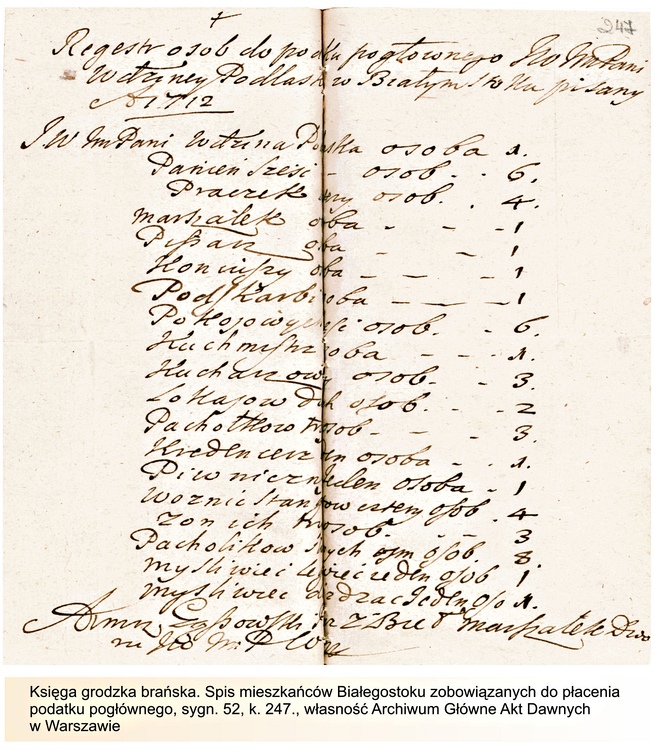 247
Regestr osob do podku pogłownego Jw Im Pani
Wdziney Podlask w Białym stoku pisany
A 1712
JW Im Pani Wdzina Po ska osoba 1.
Panien sześć osob 6.
Praczek ry osob 4.
marszałek oba 1
Pissarz oba 1
Koniuszy oba 1
Podskarbi oba 1
Pokojowych osob 6.
Kuchmistrz oba 1.
Kucharzow osob 3.
Lokajow osob 2
Pachołkow osob 3.
Kredencerz den osoba 1.
Piwniczny jeden osoba 1
Woznic cztery osob 4
zon ich osob 3
Pacholikow ych osm osob 8.
myśliwiec jeden osob 1
myśliwiec Jeden oso 1.
marszałek Dwo
Księga grodzka brańska. Spis mieszkańców Białegostoku zobowiązanych do płacenia
podatku pogłównego, sygn. 52, k. 247., własność Archiwum Główne Akt Dawnych
w Warszawie